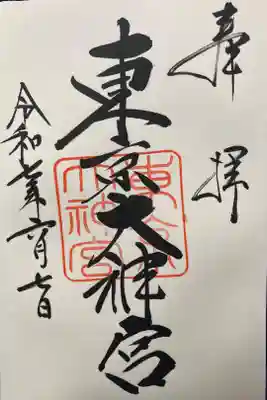 奉拝
東京大神宮
東京大神宮
令和七年六月七日